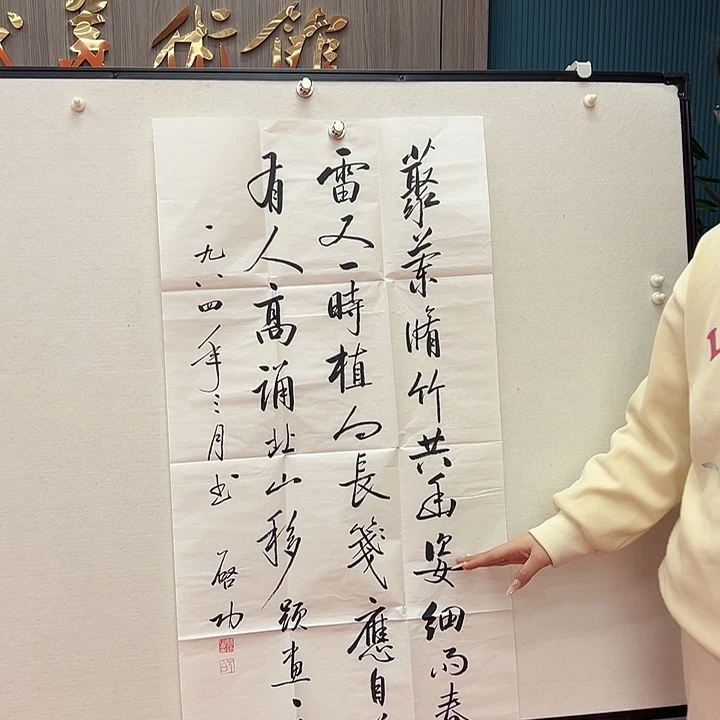 美術館
叢蘭脩竹共幽姿細雨春
雷又一時植向長箋應自
有人高誦北山移題畫
一九八四年三月书 啓功